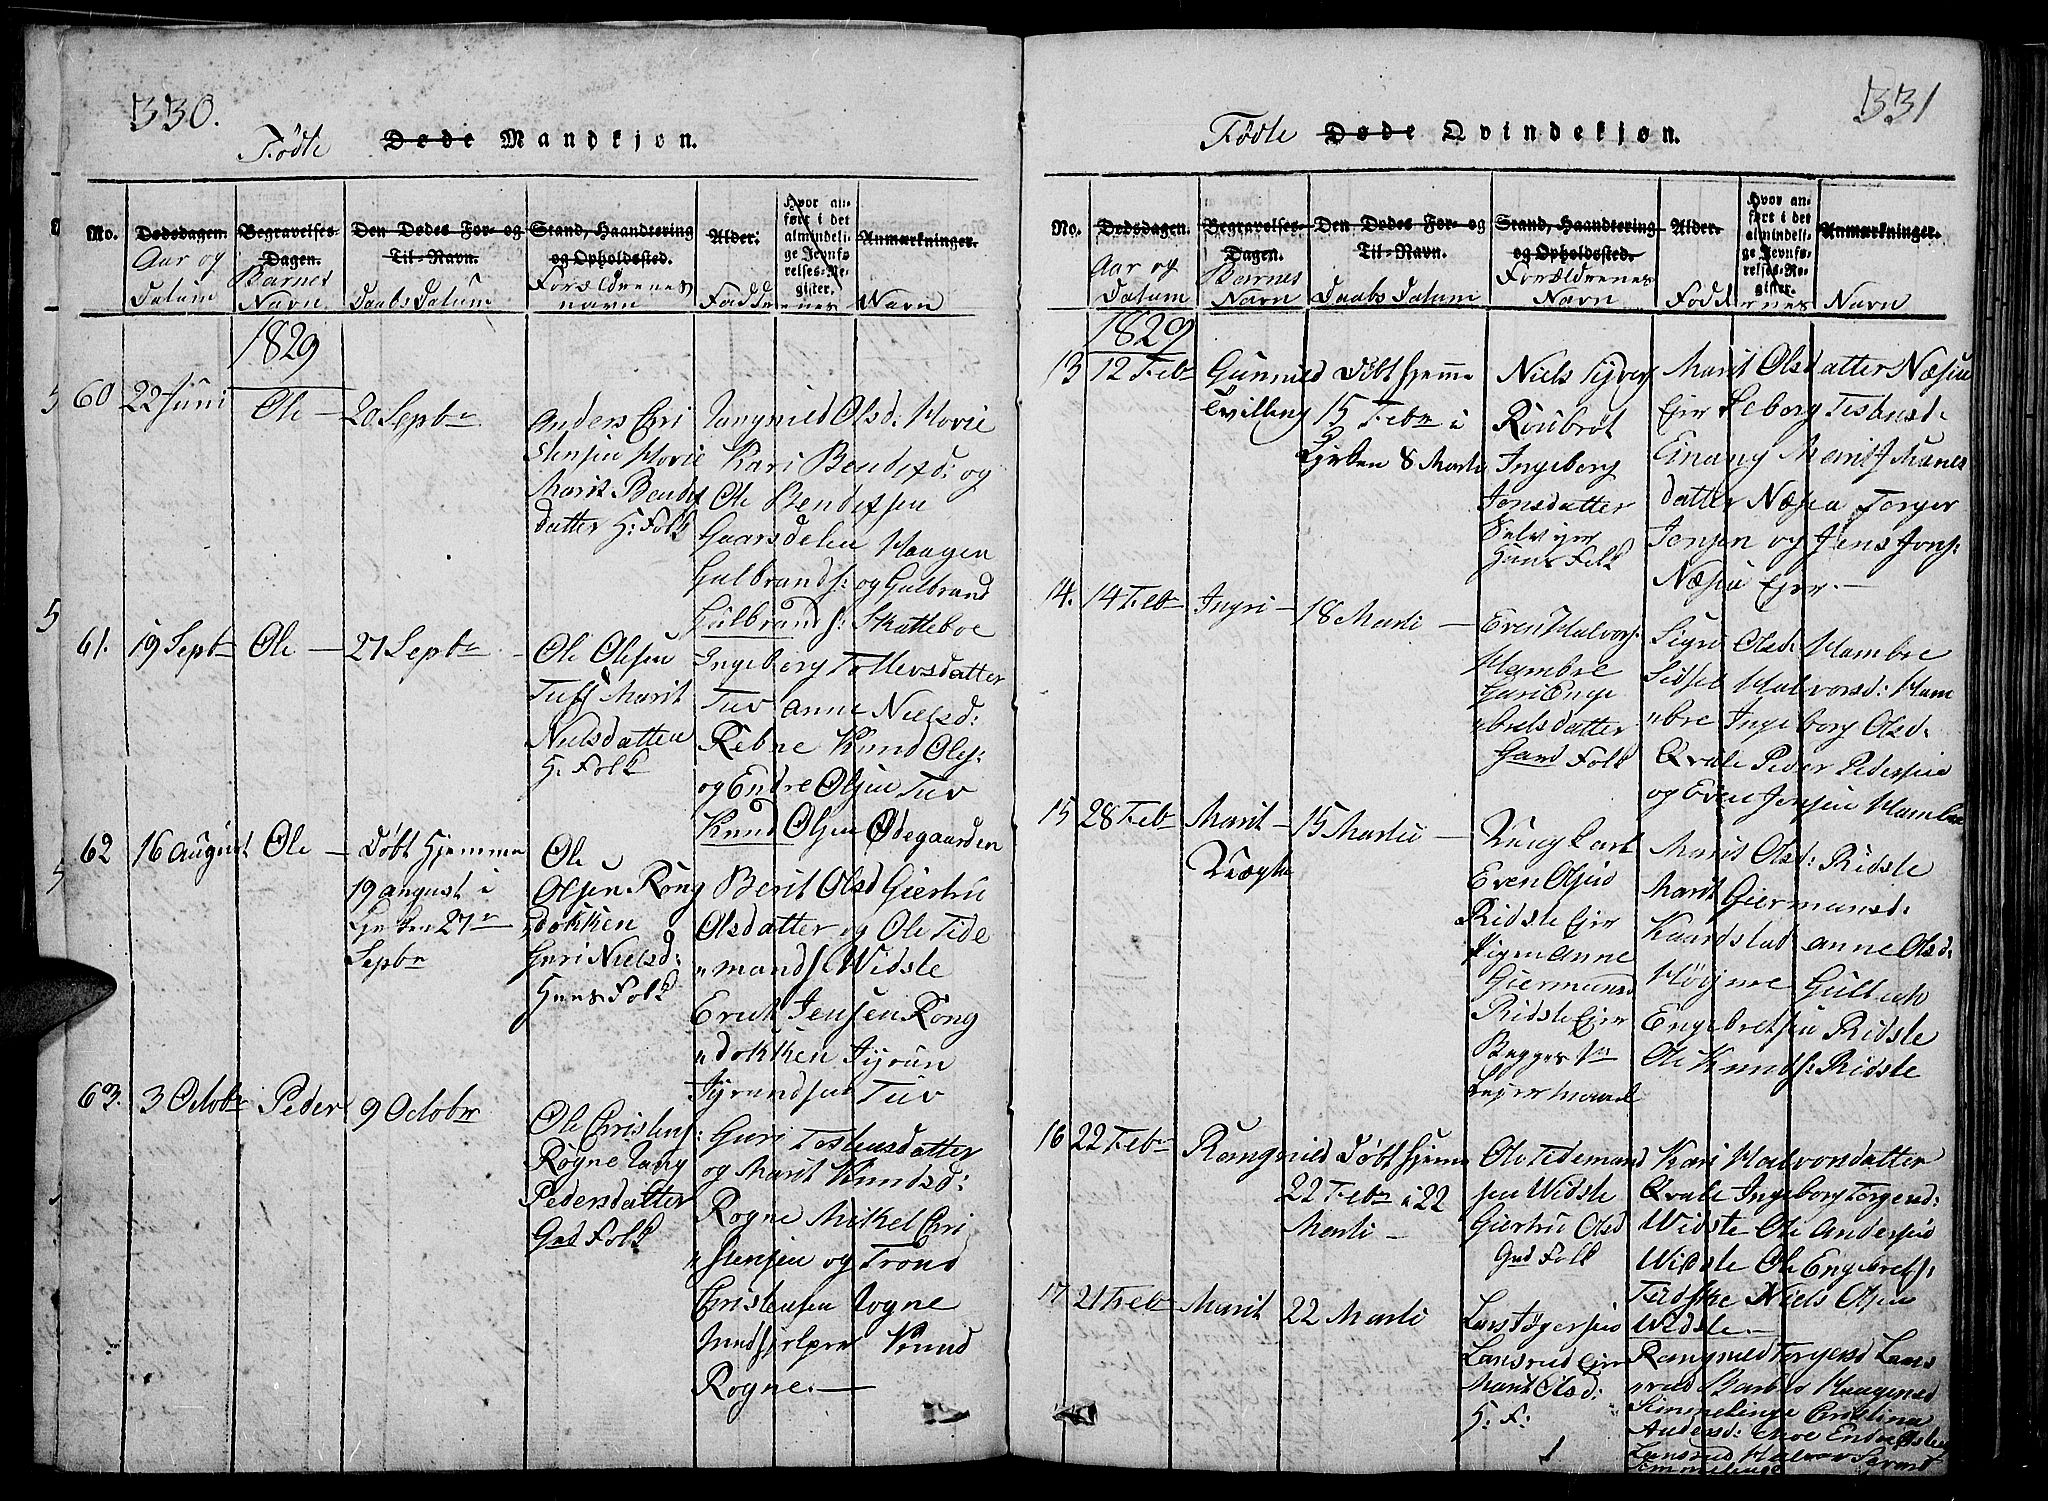 330.
Fødte Døde Mandkjøn.
No.
Dødsdagen.
Aar og
Datum
Begravelses-
Dagen.
Barnets
Navn
Den Dødes For- og
Til-Navn.
Daabs Datum
Stand, Haandtering
og Opholdssted.
Forældrenes
navn
Alder.
Hvor an-
ført i det
almindeli-
ge Jevnfø-
relses-Re-
gister.
Anmærkninger.
Faddernes Navn
1829
60 22 Juni
Ole —
20 Septbr
Anders Chri
stensen Hovie
Marit Bendix
datter H: Folk
Rangnild Olsd: Hovie
Kari Bendixd: og
Ole Bendixsen
Gaarsdelen Haagen
Gulbrands: og Gulbrand
Gulbrands: Skatteboe
61. 19 Septbr
Ole —
27 Septbr
Ole Olesen
Tuff Marit
Nielsdatter
H. Folk
Ingeborg Tollevsdatter
Tuv Anne Nielsd:
Rebne Knud Oles:
og Endre Olsen Tuv
Knud Olsen Ødegaarden
62 16 August
Ole —
Døbt Hjemme
19 august i
Kirken 27
Septbr
Ole
Olsen Rong
dokken
Guri Nielsd:
Huus Folk
Berit Olsd Giertru
Olsdatter og Ole Tide
mands Widste
Erick Jensen Rong
dokken Jyrun
Jyrundsen Tuv
63. 3 Octobr
Peder
9 Octobr
Ole Christens:
Rogne Rang
Pedersdatter
Grd Folk
Guri Tostensdatter
og Marit Knudsd:
Rogne Mikel Chri
stensen og Trond
Christensen Rogne
Knud
Rogne. —
331
Fødte Døde Qvindekjøn.
No.
Dødsdagen.
Aar og
Datum
Begravelses-
Dagen.
Barnes
Navn
Den Dødes For- og
Til-Navn.
Daabs Datum
Stand, Haandtering
og Opholdssted.
Forældrenes
Navn
Alder.
Hvor an-
ført i det
almindeli-
ge Jevnfø-
relses-Re-
gister.
Anmærkninger.
Faddernes Navn
1829
13 12 Febr
Gunnild
tvilling
Døbt hjemme
15 Febr i
Kirken 8 Marti
Niels Syver
Roubrot
Ingeborg
Jonsdatter
Selv ejer
Huus Folk
Marit Olsdatter Næsie
Ejer Seborg Tostensd.
Einang Marit Hans
datter Næsia Torger
Jensen og Jens Jons:
Næsia Ejer. —
14. 14 Febr
Ingri —
18 Marti —
Even Halvors:
Hambre
Guri Enge
brets datter
Gard Folk
Sigri Olsd: Hambre
Sidsel Halvorsd: Ham
bre Ingeborg Olsd.
Qvale Peder Pedersen
og Even Jensen Hambre
15 28 Febr
Marit —
Uægte
15 Martii —
Ungkarl
Even Olsen
Ridste Ejer
Pigen Anne
Giermunsd
Ridste Ejer
Begges 1te
Lejermaal
Marit Olsd: Ridste
Marit Giermunsd:
Kaardstad Anne Olsd:
Høigne Gulbrch
Engebretsen Ridste
Ole Knuds: Ridste
16 22 Febr
Rangnild
Døbt hjeme
22 Febr i 22
Marti —
Ole Tidemand
sen Widste
Giertru Olsd
Grd Folk
Kari Halvorsdatter
Qvale Ingeborg Torgersd:
Widste Ole Andersen
Widste Ole Engebrets:
Ferdske Niels Olsen
Widste —
17 21 Febr
Marit
22 Marti
Lars Tøgersen
Lansrud Ejer
Marit Olsd:
H: F:
Rangnild Torgersd Lans
rud Barbro Haagensd
Kimmelinge Cristina
Andersd: Moe Endre
Lansrud Halvor
Semmelinge